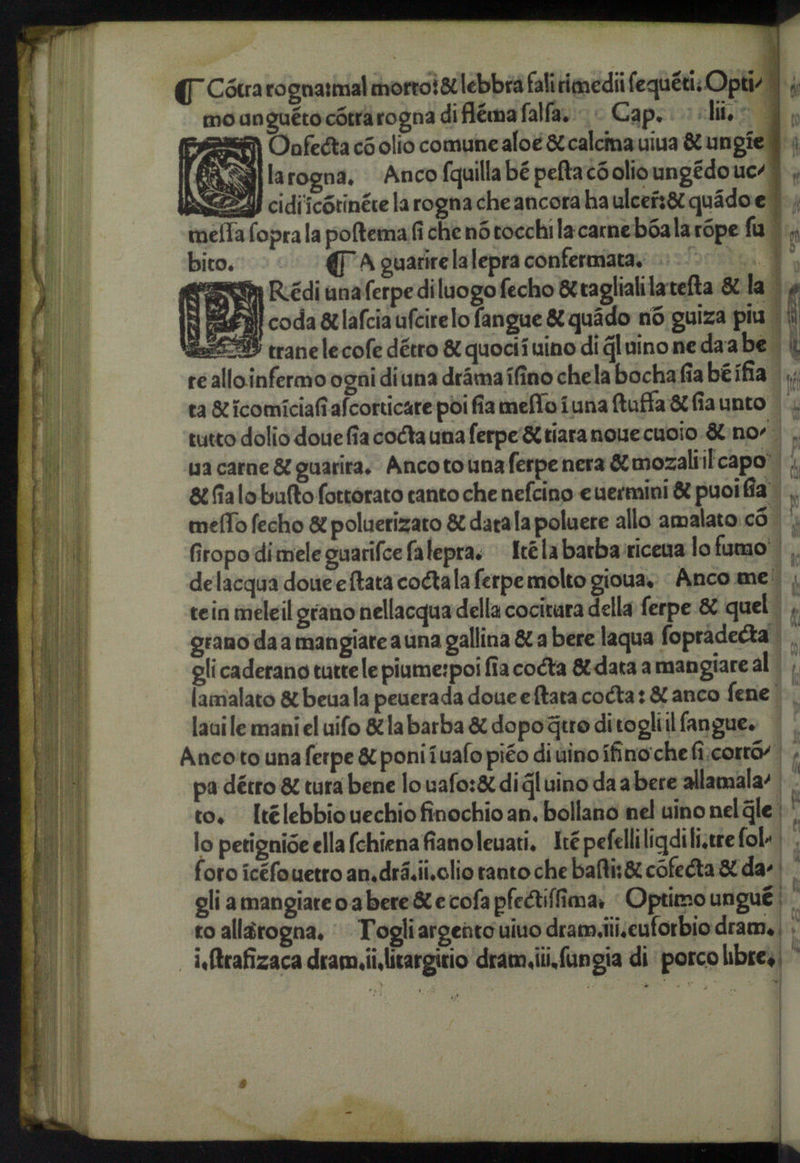 ❡ Cótra rognaɪmal mortoɪ& lebbra fali rimedii ſequéti. Opti⸗
mo unguéto cótra rogna di flégma falſa. Cap. lii.
COnfecta có olio comune aloe & calcina uiua & ungie
la rogna. Anco ſquilla bé peſta có olio ungédo uc⸗
cidi ícótinéte la rogna che ancora ha ulceri:& quádo e
meſſa ſopra la poſtema ſi che nó tocchi la carne bóa la rópe ſu
bito. ❡ A guarire la lepra confermata.
PRédi una ſerpe di luogo ſecho & tagliali la teſta & la
coda & laſcia uſcire lo ſangue & quádo nó guiza piu
trane le coſe détro & quoci í uino di q̃l uino ne da a be
re allo infermo ogni di una dráma íſino che la bocha ſia bé íſia
ta & ícomiciaſi a ſcorticare poi ſia meſſo í una ſtuffa & ſia unto
tutto dolio doue ſia cocta una ſerpe & tiara noue cuoio & no⸗
ua carne & guarira. Anco to una ſerpe nera & mozali il capo
& ſia lo buſto ſottorato tanto che neſcino e uermini & puoi ſia
meſſo ſecho & poluerizato & data la poluere allo amalato có
ſiropo di mele guariſce ſa lepra. Ité la barba riceua lo fumo
de lacqua doue e ſtata cocta la ſerpe molto gioua. Anco me
te in mele il grano nellacqua della cocitura della ſerpe & quel
grano da a mangiare a una gallina & a bere laqua ſopradecta
gli caderano tutte le piume:poi ſia cocta & data a mangiare al
lamalato & beua la peuerada doue e ſtata cocta : & anco ſene
laui le mani el uiſo & la barba & dopo q̃tro di togli il ſangue.
Anco to una ſerpe & poni í uaſo piéo di uino íſino che ſi corró⸗
pa détro & tura bene lo uaſo:& di q̃l uino da a bere allamala⸗
to. Ité lebbio uechio finochio an. bollano nel uino nel q̃le
lo petignióe ella ſchiena ſiano leuati. Ité peſelli liqdi li.tre ſol⸗
foro ícéſo uetro an.drá.ii.olio tanto che baſti:& cófecta & da⸗
gli a mangiare o a bere & e coſa pfectiſſima. Optimo ungué
to alla rogna. Togli argento uiuo dram.iii.euforbio dram.
i.ſtrafizaca dram.ii.litargirio dram.iii.ſungia di porco libre.